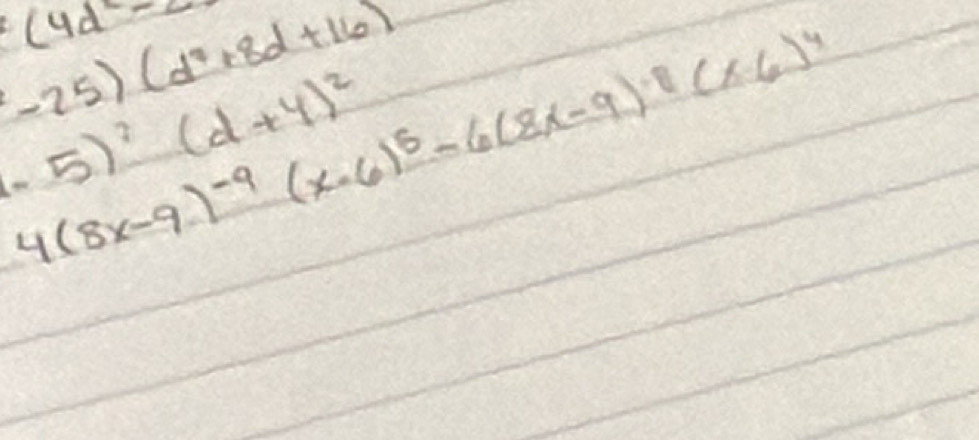 (4d² -
-25) (d²+8d+16)
- 5)² (d+4)²
4(8x-9)⁻⁹ (x-6)⁵ - 6(8x-9)⁻⁸ (x-6)⁴